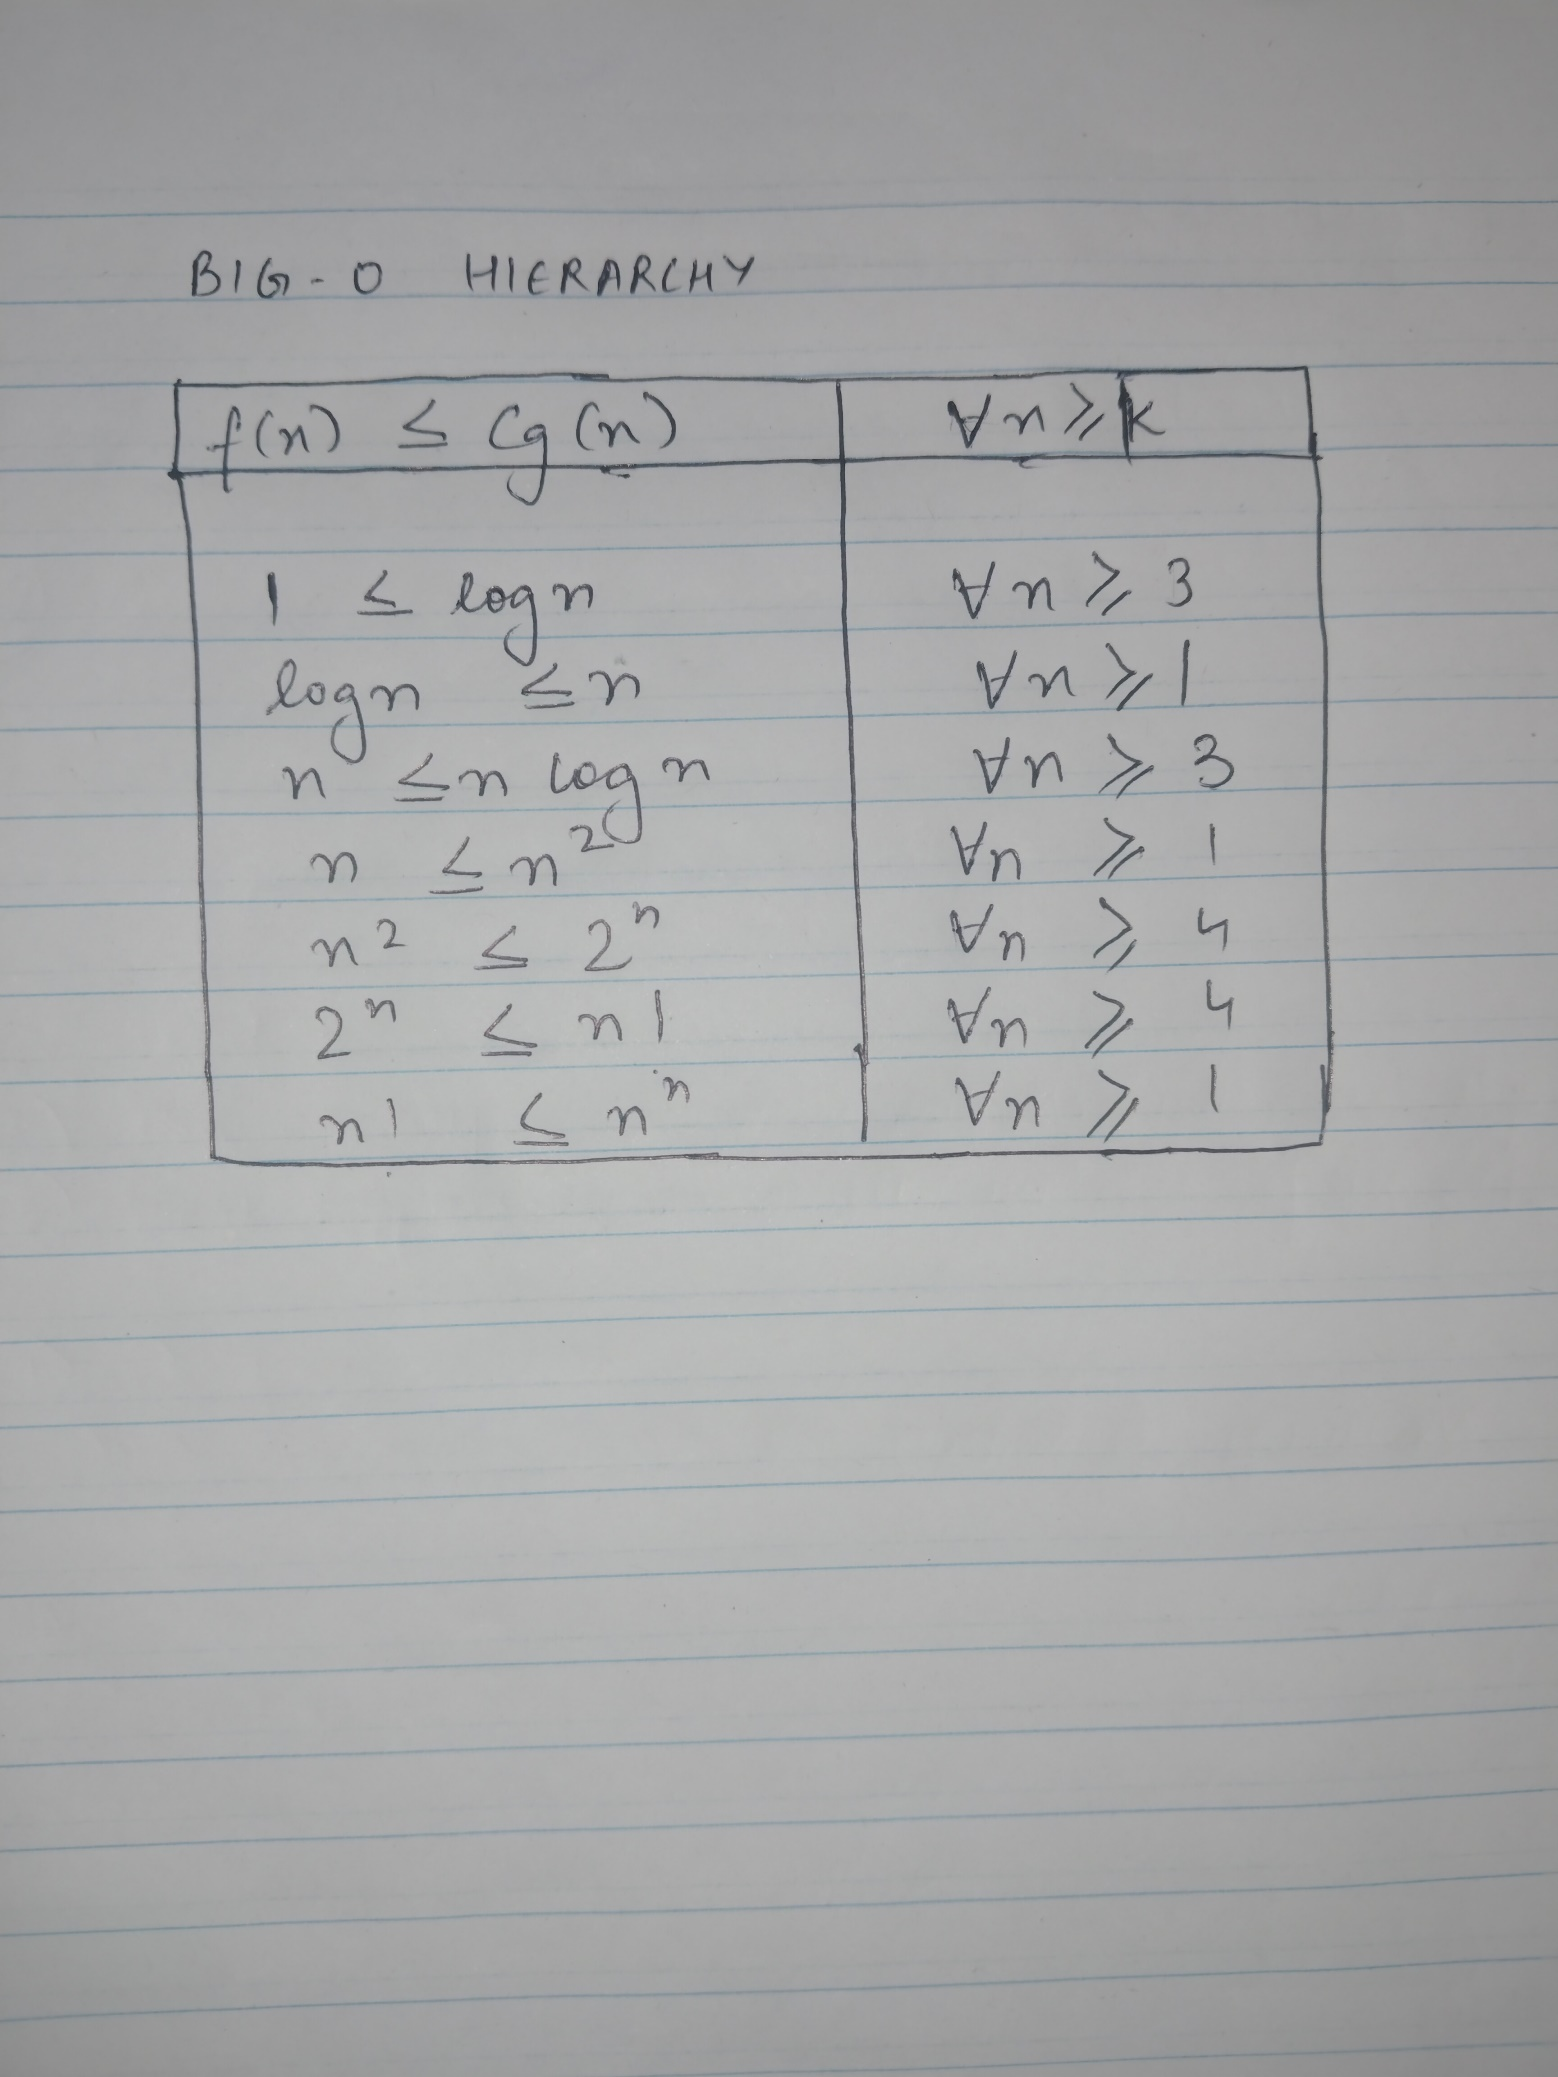 BIG-O HIERARCHY
f(n) ≤ Cg(n) ∀n ⩾ k
1 ≤ logn ∀n ⩾ 3
logn ≤ n ∀n ⩾ 1
n ≤ n logn ∀n ⩾ 3
n ≤ n² ∀n ⩾ 1
n² ≤ 2ⁿ ∀n ⩾ 4
2ⁿ ≤ n! ∀n ⩾ 4
n! ≤ nⁿ ∀n ⩾ 1